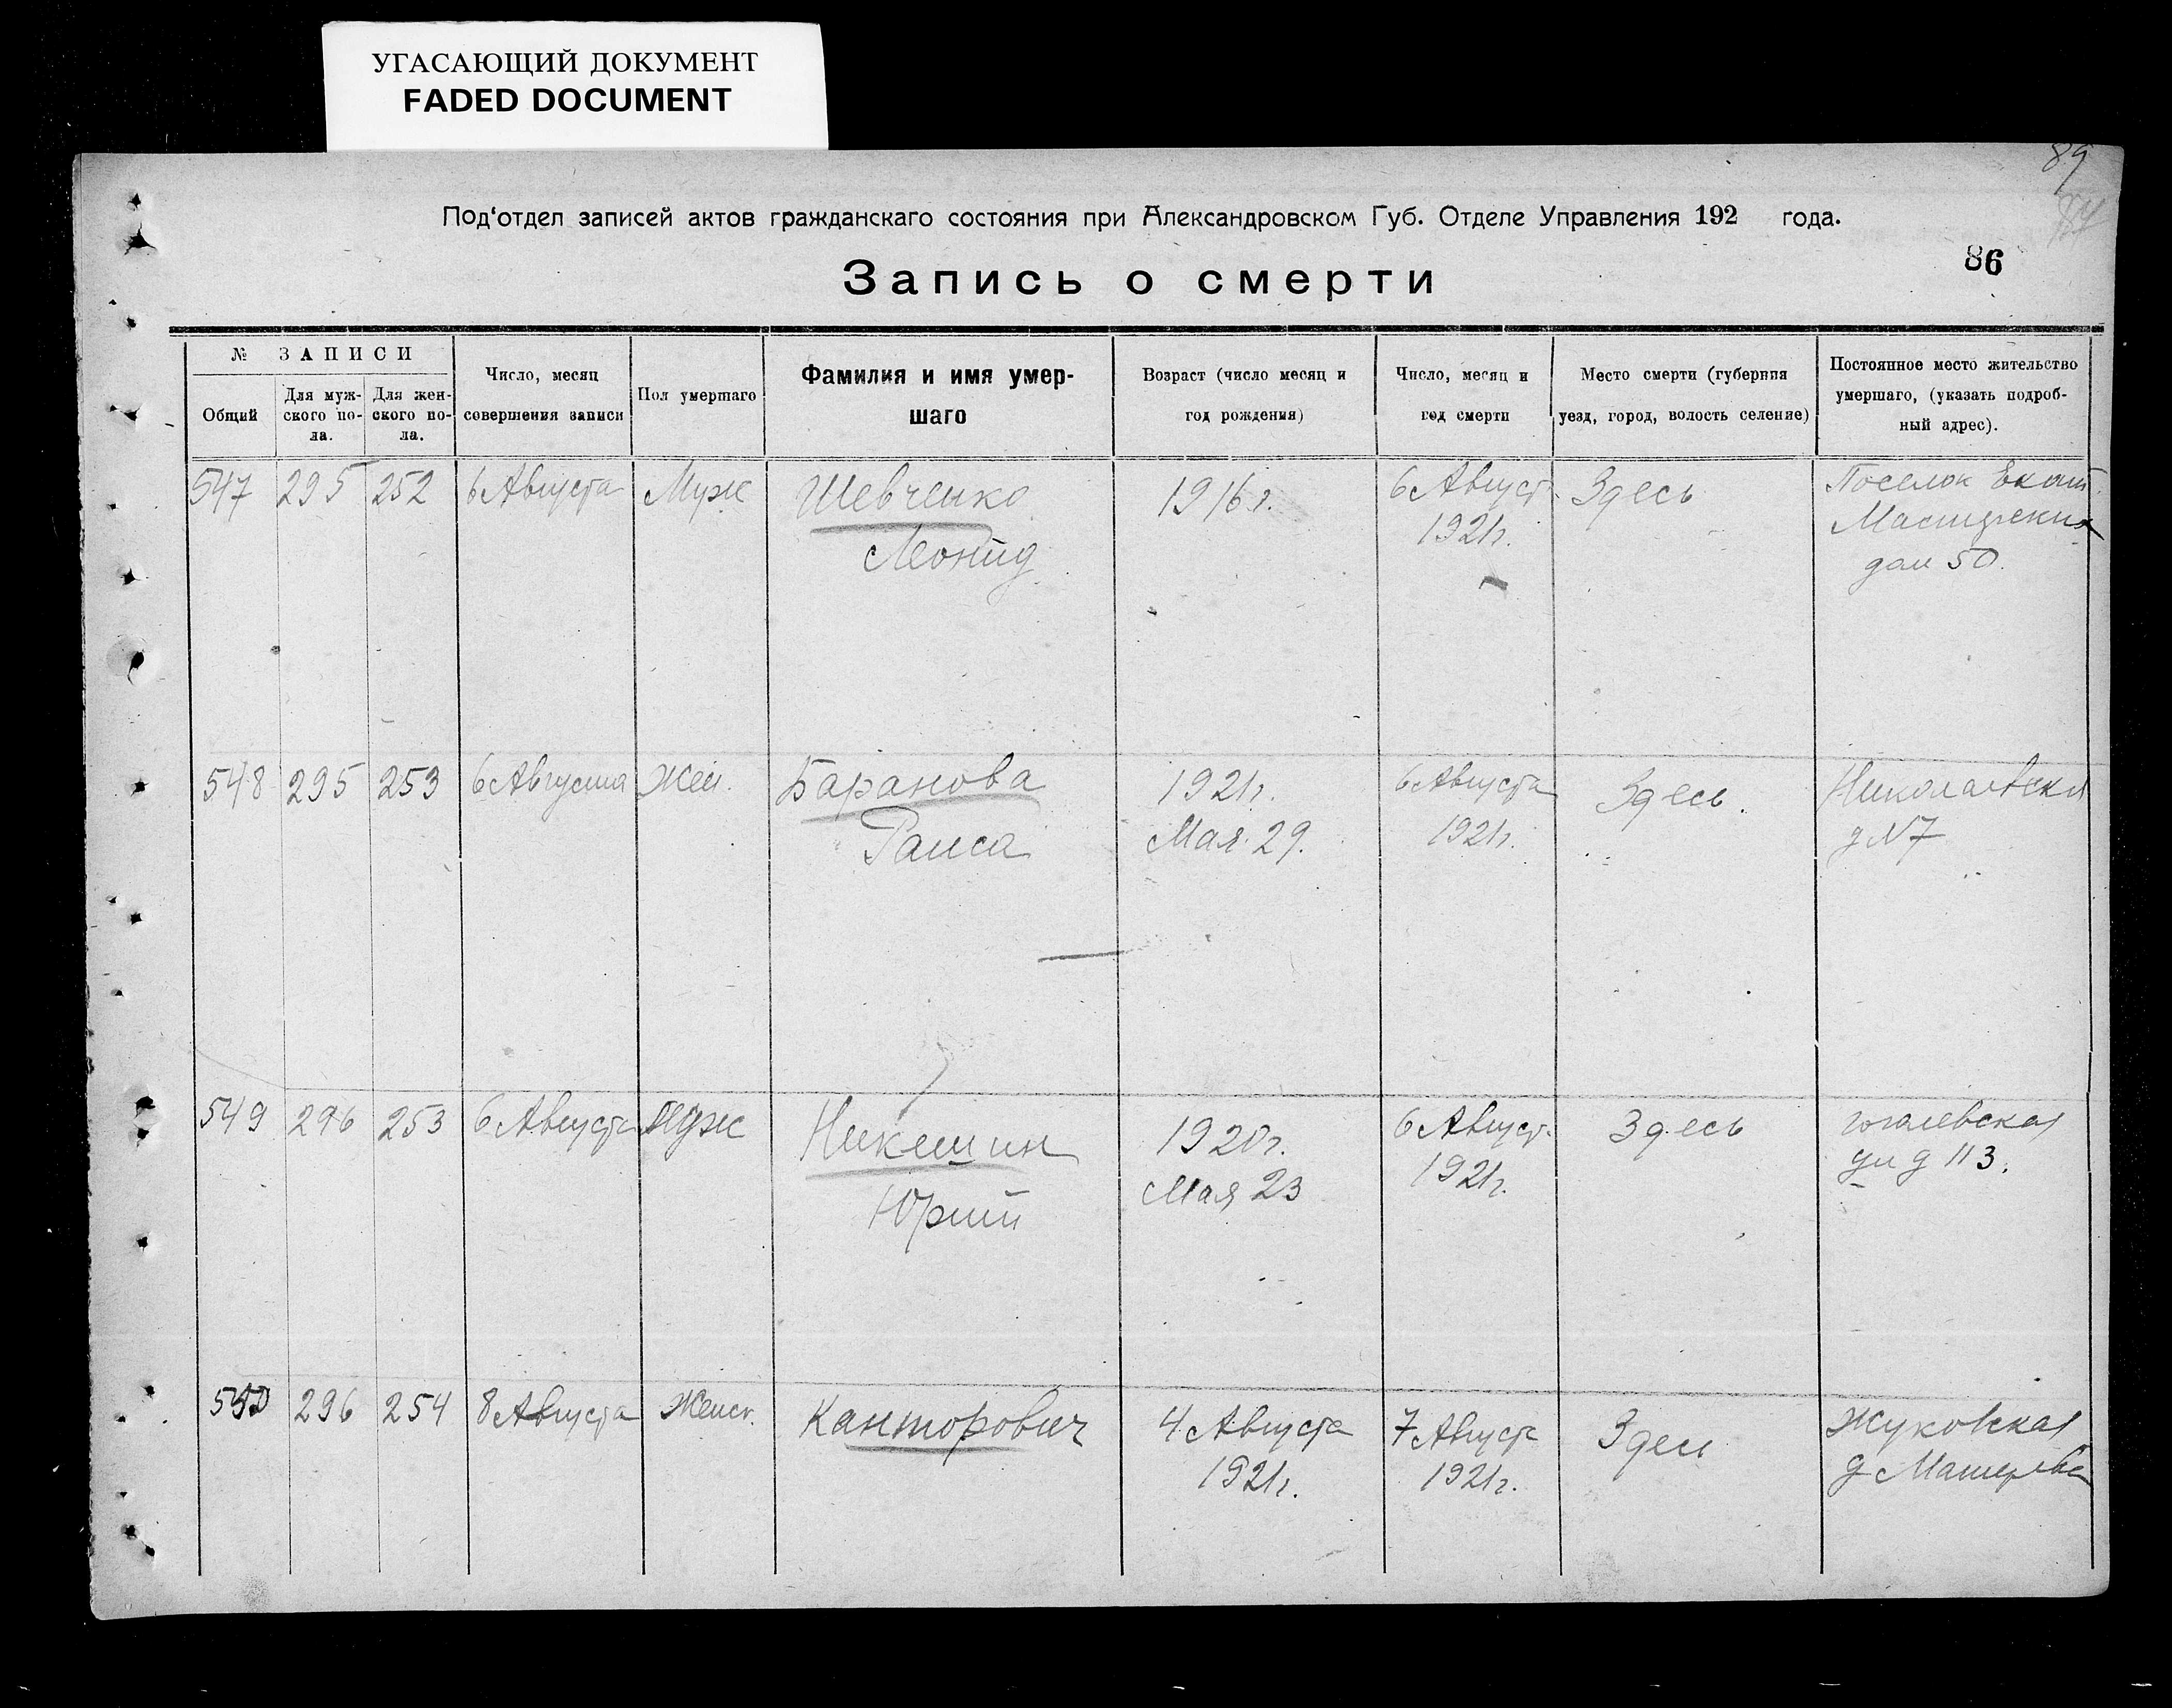 УГАСАЮЩИЙ ДОКУМЕНТ
FADED DOCUMENT
89
Под‘отдел записей актов гражданскаго состояния при Александровском Губ. Отделе Управления 192 года.
86
Запись о смерти
№ ЗАПИСИ
Общий
Для муж-
ского по-
ла.
Для жен-
ского по-
ла.
Число, месяц
совершения записи
Пол умершаго
Фамилия и имя умер-
шаго
Возраст (число месяц и
год рождения)
Число, месяц и
год смерти
Место смерти (губерния
уезд, город, волость селение)
Постоянное место жительство
умершаго, (указать подроб-
ный адрес).
547 295 252 6 Августа Муж Шевченко 1916 г. 6 Август Здесь Поселок Екат.
Леонид 1921 г.
дом 50.
548 295 253 6 Августа Жен. Баранова 1921 г. 6 Августа Здесь. Николаевская
Раиса Мая 29. 1921 г. д N 7
549 296 253 6 Августа Муж Никешин 1920 г. 6 Август. Здесь гоголевская
Юрий Мая 23 1921 г. ул д 113.
550 296 254 8 Августа Женск. Канторович 4 Августа 7 Августа Здесь Жуковская
1921 г. 1921 г. д